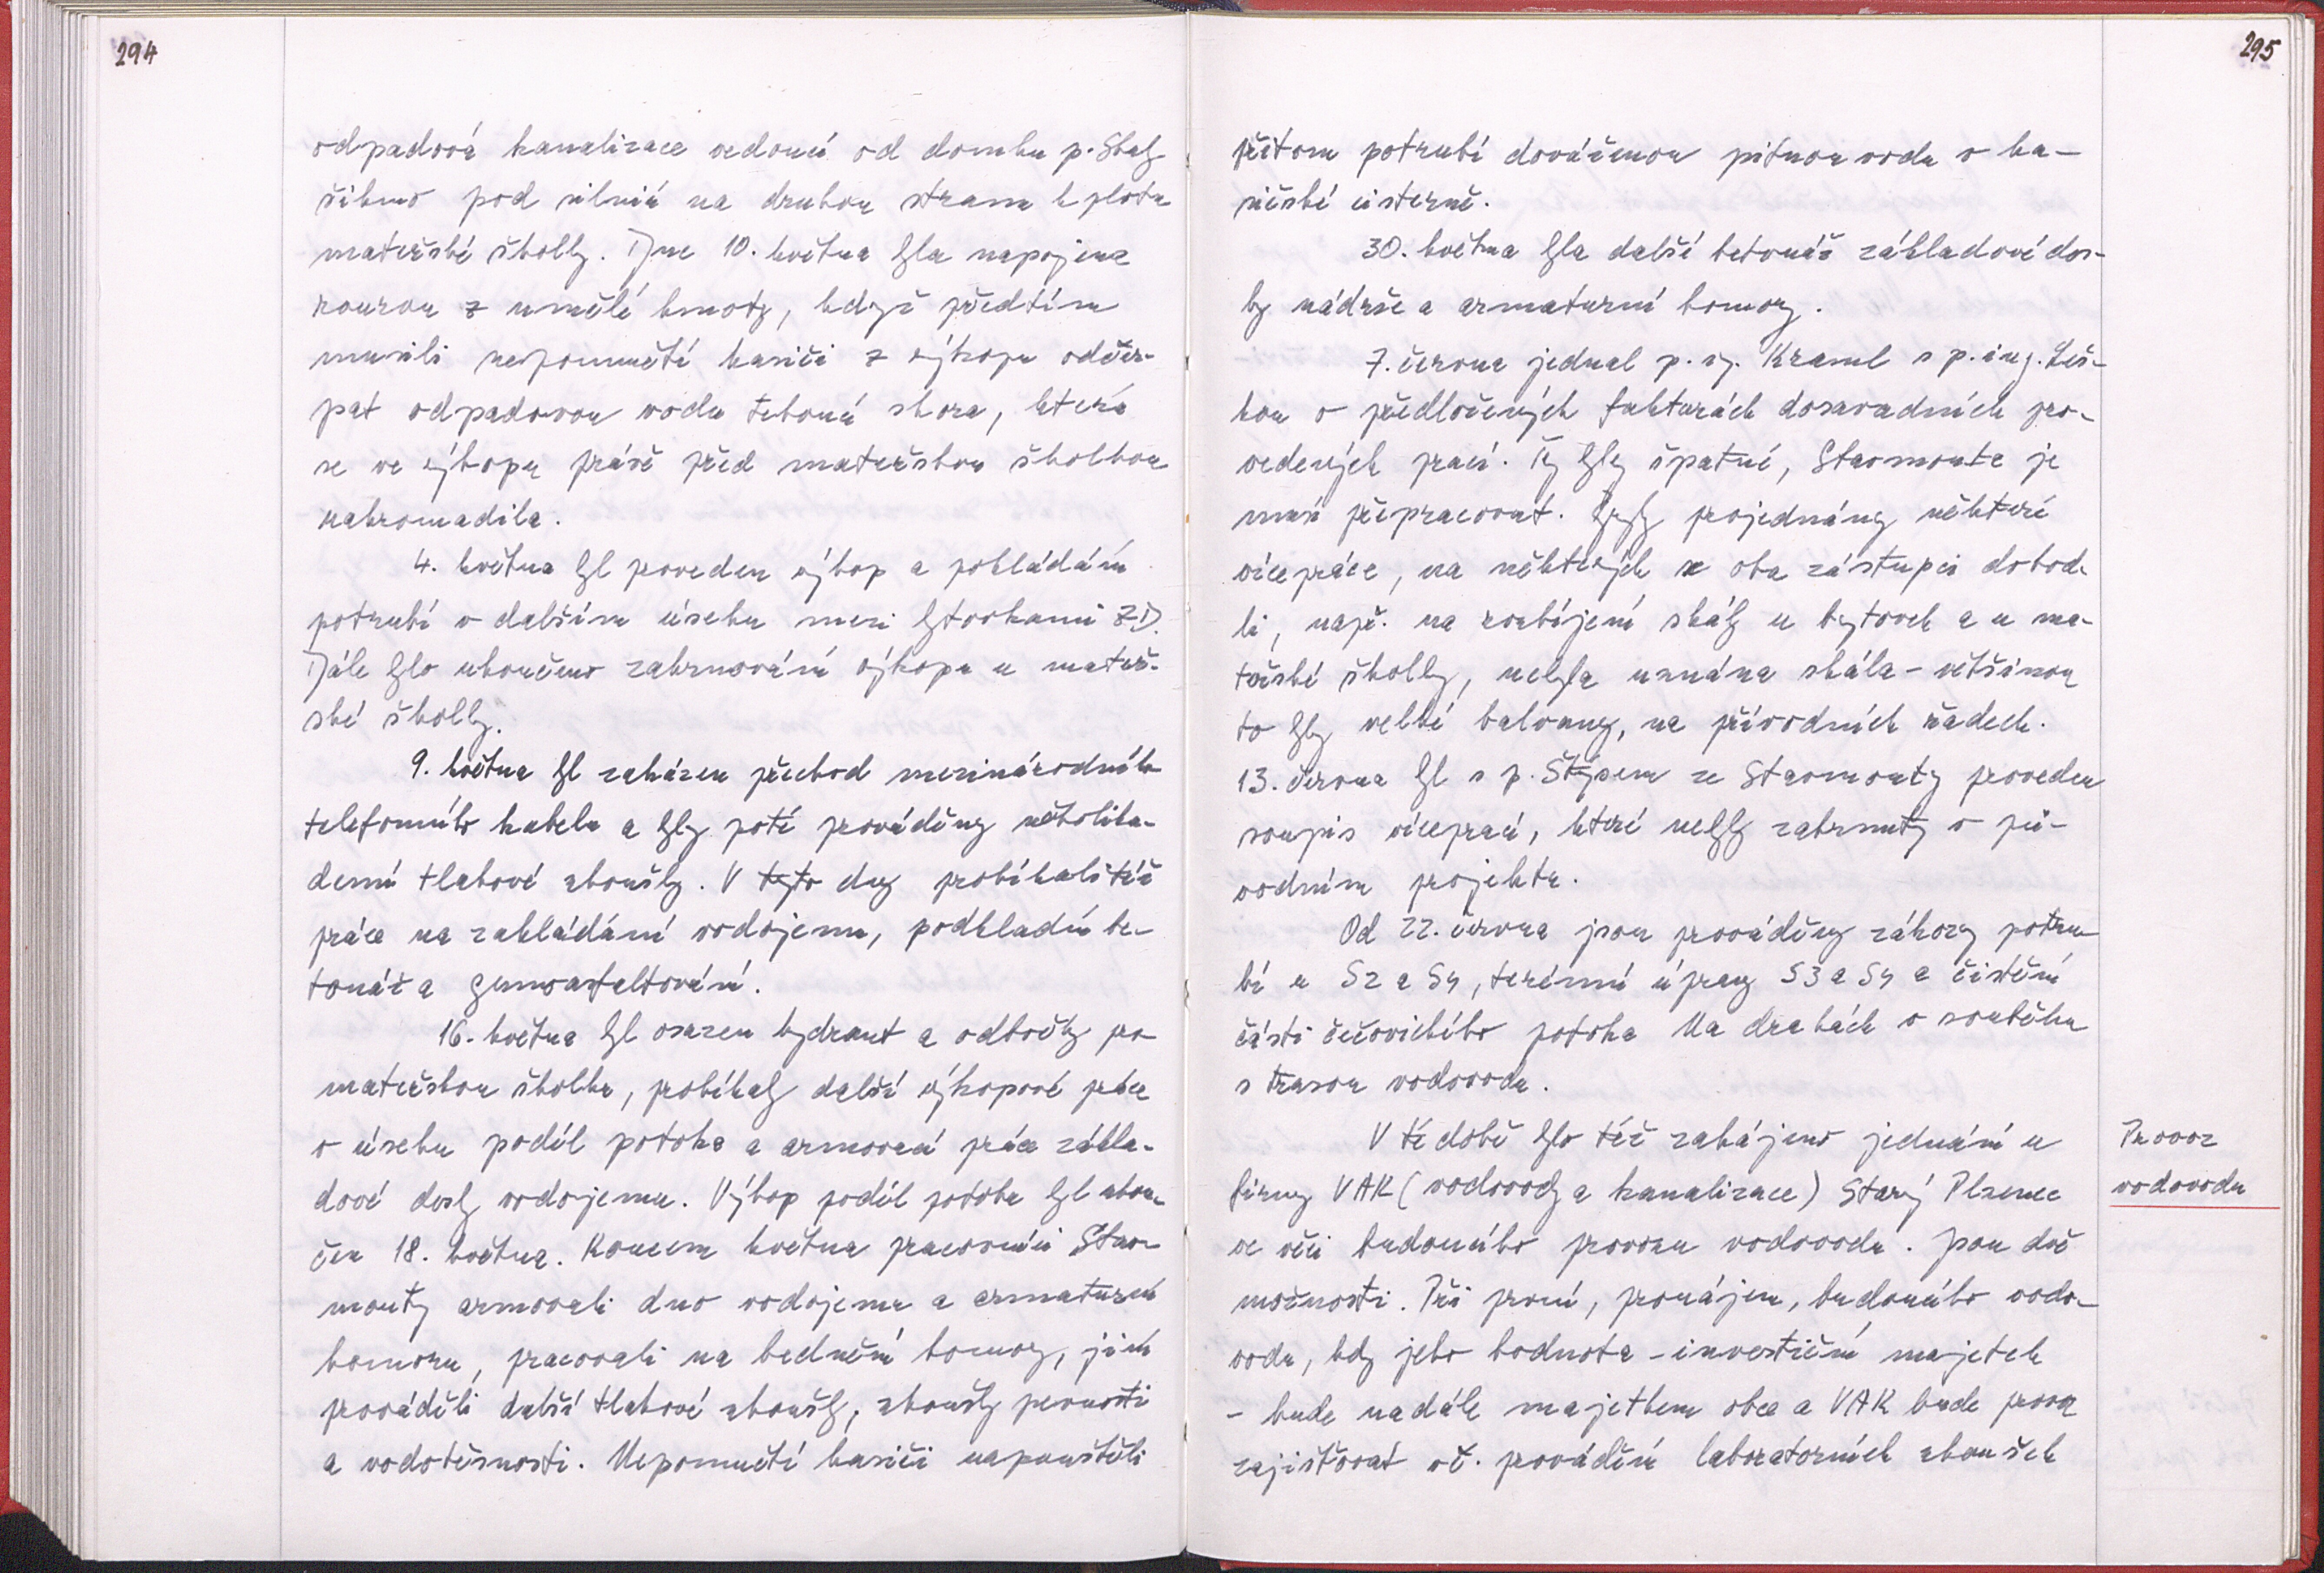 294
odpadová kanalizace vedoucí od domku p.
šikmo pod silnicí na druhou stranu k plotu
mateřské školky. Dne 10. května byla napojena
rourou z umělé hmoty, když předtím
musili nepomučtí hasiči z výkopu odčer-
pat odpadovou vodu tekoucí shora, která
se ve výkopu právě před mateřskou školkou
nahromadila.
4. května byl proveden výkop a pokládání
potrubí v dalším úseku mezi bytovkami ZD.
Dále bylo ukončeno zahrnování výkopu u mateř-
ské školky.
9. května byl zaházen přechod mezinárodního
telefonního kabelu a byly poté prováděny několika-
denní tlakové zkoušky. V tyto dny probíhali též
práce na zakládání vodojemu, podkladní be-
tonáž a gumoasfaltování.
16. května byl osazen hydrant a odbočky pro
mateřskou školku, probíhaly další výkopové práce
v úseku podél potoka a armovací práce zákla-
dové desky vodojemu. Výkop podél potoka byl ukon-
čen 18. května. Koncem května pracovníci Stav-
monty armovali dno vodojemu a armaturní
komoru, pracovali na bednění komory, jiní
prováděli další tlakové zkoušky, zkoušky pevnosti
a vodotěsnosti. Nepomučtí hasiči napouštěli
295
přitom potrubí dováženou pitnou vodu v ha-
sičské cisterně.
30. května byla další betonáž základové des-
ky nádrže a armaturní komory.
7. června jednal p. Kraml s p. ing. Leš-
kou o předložených fakturách dosavadních pro-
vedených prací. Ty byly špatné, Stavmonta je
musí přepracovat. Byly projednány některé
vícepráce, na některých se oba zástupci dohod-
li, např. na rozbíjení skály u bytovek a u ma-
teřské školky, nebyla uznána skála - většinou
to byly velké balvany, na přívodních řadech.
13. června byl s p. Štýsem ze Stavmonty proveden
soupis víceprací, které nebyly zahrnuty v pů-
vodním projektu.
Od 22. června jsou prováděny záhozy potru-
bí u S2 a S4, terénní úpravy S3 a S4 a čistění
části čečovického potoka Na drahách v souběhu
s trasou vodovodu.
V té době bylo též zahájeno jednání u
firmy VAK (vodovody a kanalizace) Starý Plzenec
ve věci budoucího provozu vodovodu. Jsou dvě
možnosti. Při první, pronájem, budoucího vodo-
vodu, kdy jeho hodnota - investiční majetek
- bude nadále majetkem obce a VAK bude provoz
zajišťovat vč. provádění laboratorních zkoušek
Provoz
vodovodu